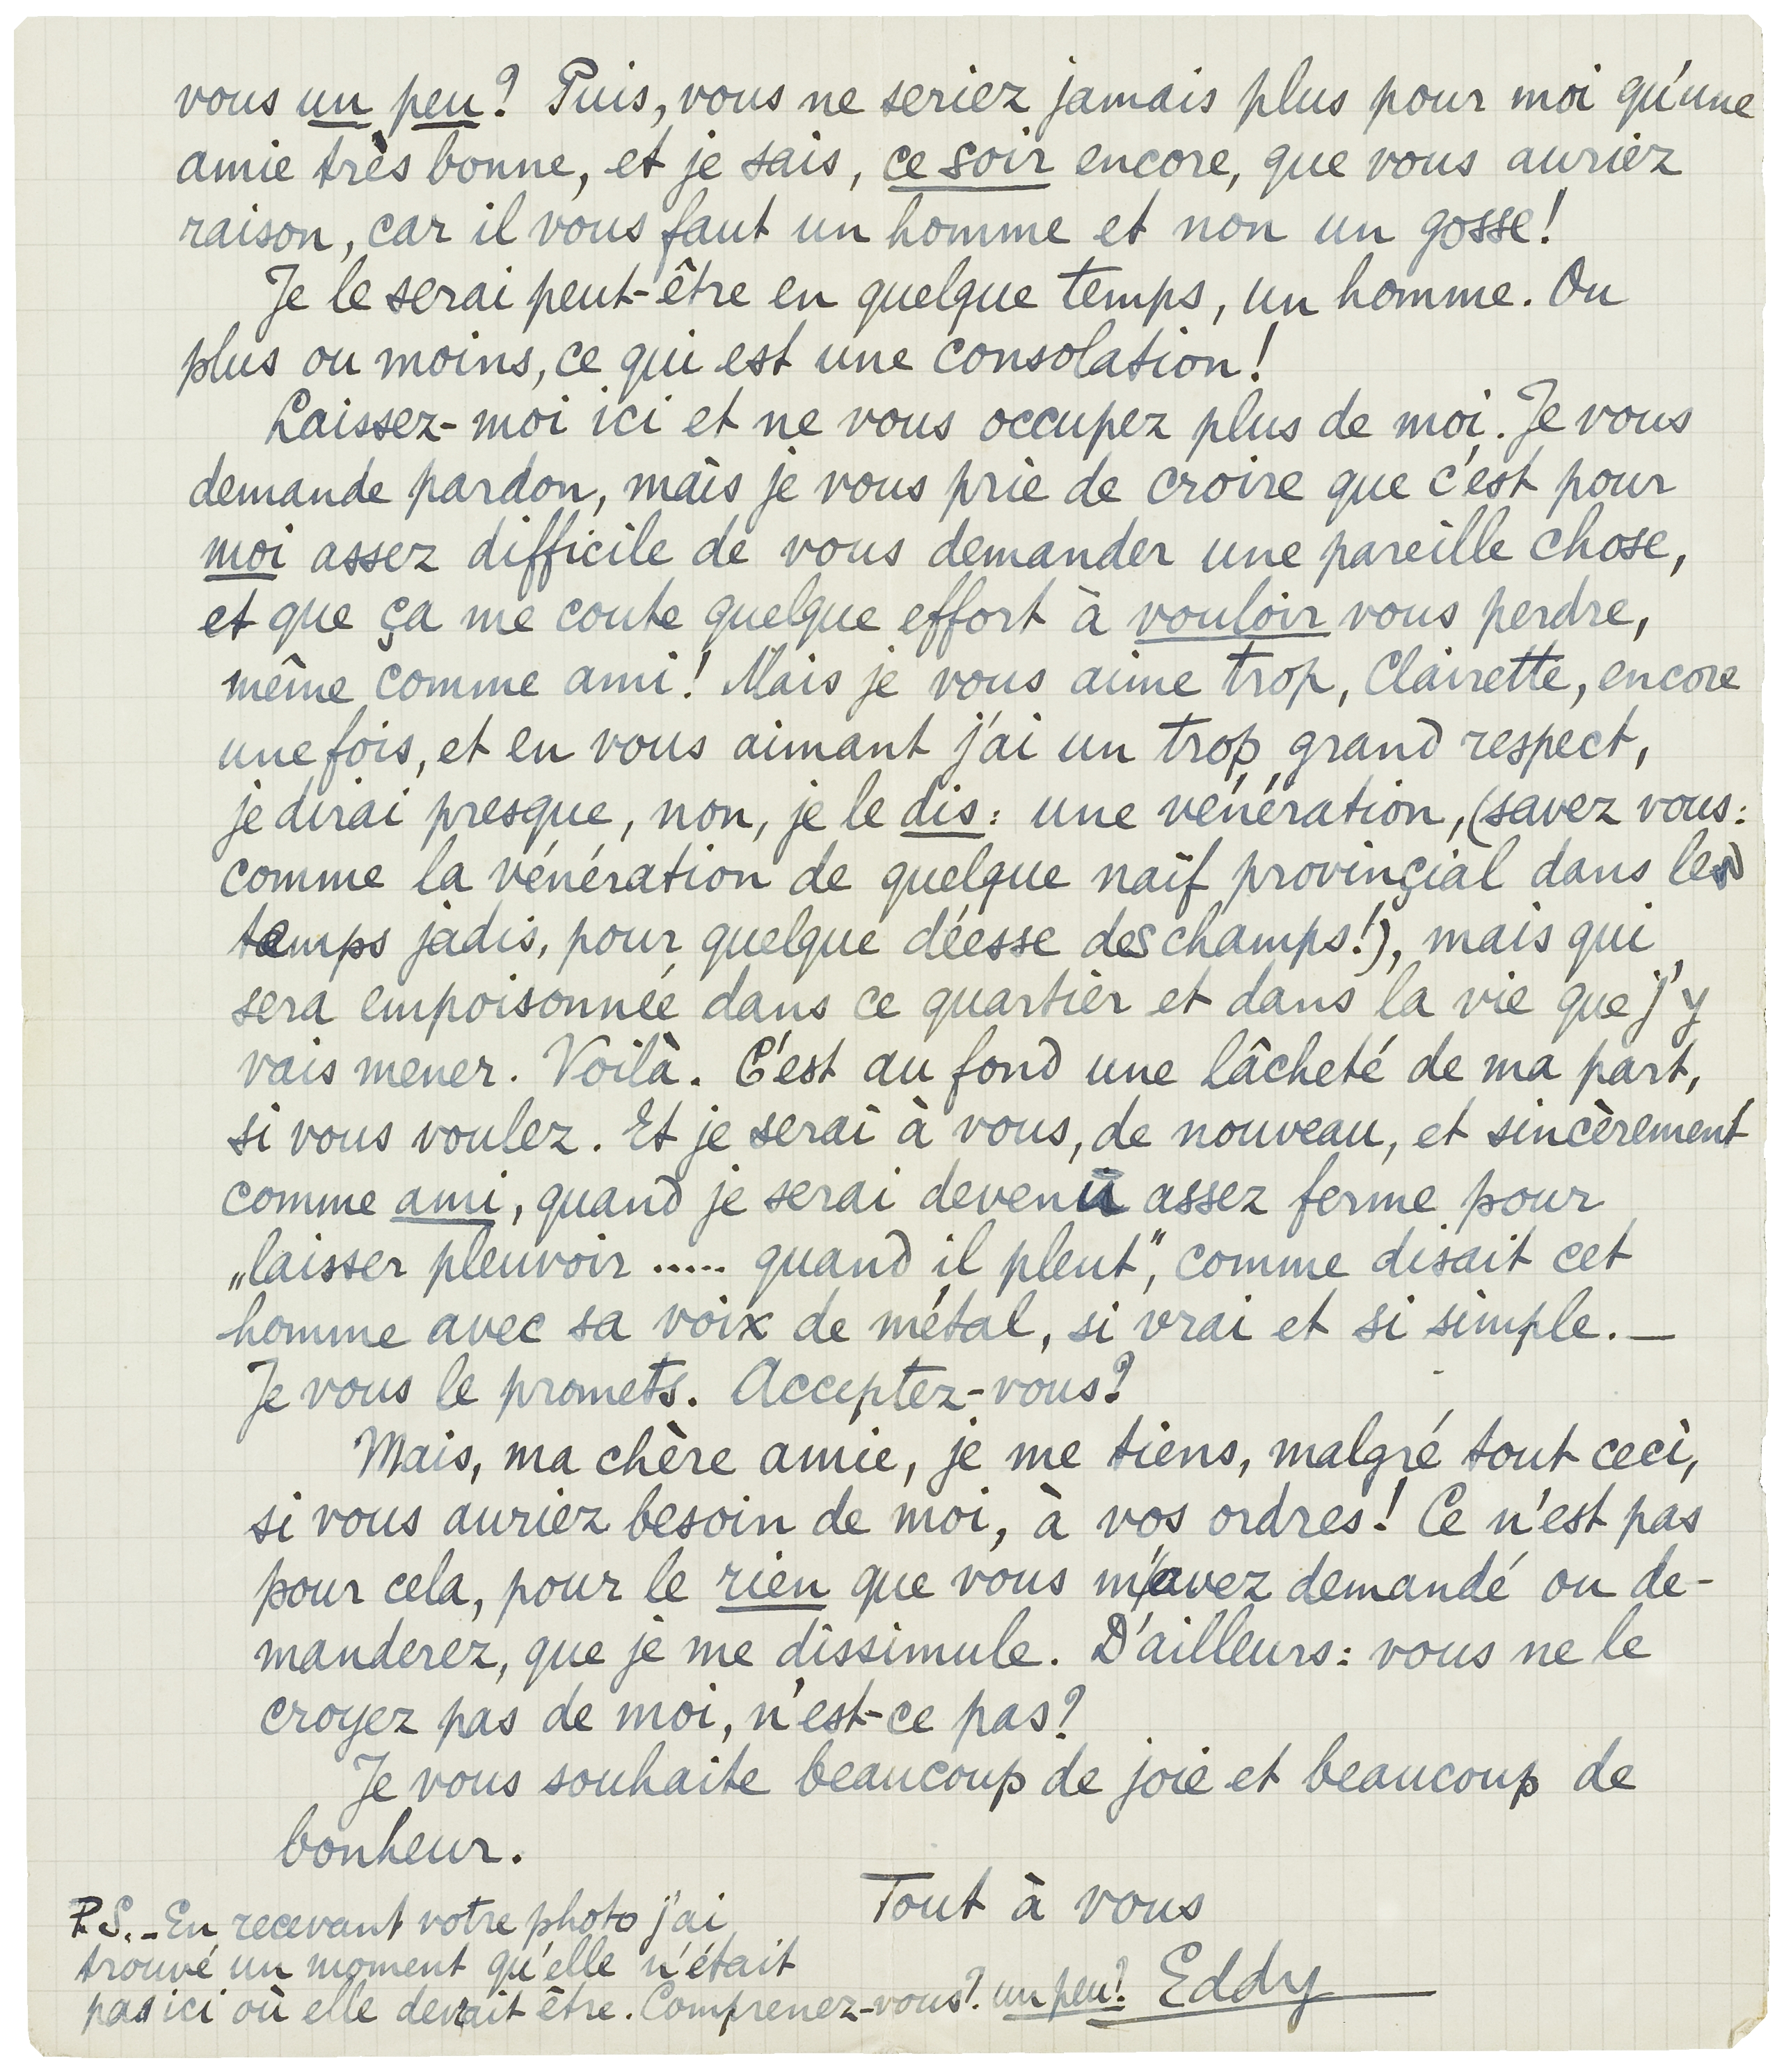 vous un peu? Puis, vous ne seriez jamais plus pour moi qu'une
amie très bonne, et je sais, ce soir encore, que vous auriez
raison, car il vous faut un homme et non un gosse!
Je le serai peut-être en quelque temps, un homme. Ou
plus ou moins, ce qui est une consolation!
Laissez-moi ici et ne vous occupez plus de moi. Je vous
demande pardon, mais je vous prie de croire que c'est pour
moi assez difficile de vous demander une pareille chose,
et que ça me coute quelque effort à vouloir vous perdre,
même comme ami! Mais je vous aime trop, Clairette, encore
une fois, et en vous aimant j'ai un trop grand respect,
je dirai presque, non, je le dis: une vénération, (savez vous:
comme la vénération de quelque naïf provinçial dans les
temps jadis, pour quelque déesse des champs!), mais qui
sera empoisonnée dans ce quartier et dans la vie que j'y
vais mener. Voilà. C'est au fond une lâcheté de ma part,
si vous voulez. Et je serai à vous, de nouveau, et sincèrement
comme ami, quand je serai devenu assez ferme pour
„laisser pleuvoir ..... quand il pleut", comme disait cet
homme avec sa voix de métal, si vrai et si simple. —
Je vous le promets. Acceptez-vous?
Mais, ma chère amie, je me tiens, malgré tout ceci,
si vous auriez besoin de moi, à vos ordres! Ce n'est pas
pour cela, pour le rien que vous m'avez demandé ou de-
manderez, que je me dissimule. D'ailleurs: vous ne le
croyez pas de moi, n'est-ce pas?
Je vous souhaite beaucoup de joie et beaucoup de
bonheur.
Tout à vous
Eddy
P.S. - En recevant votre photo j'ai
trouvé un moment qu'elle n'était
pas ici où elle devait être. Comprenez-vous? un peu?